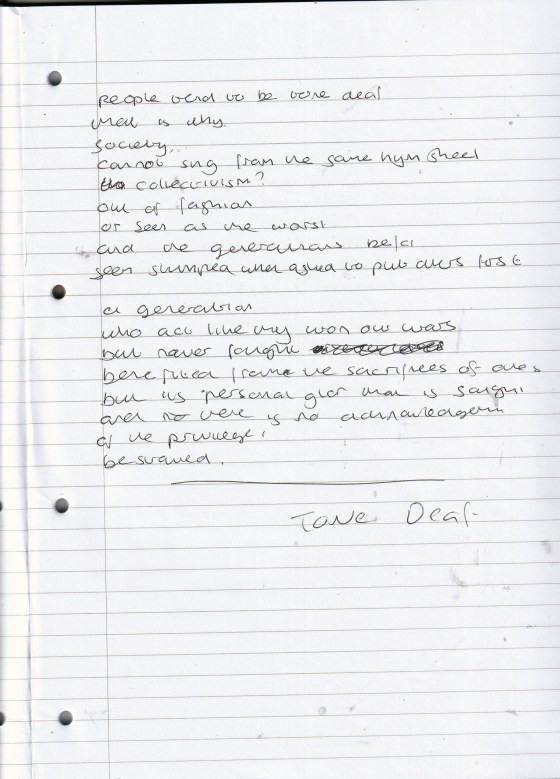 people tend to be tone deaf
that is why
society..
cannot sing from the same hym sheet
collectivism?
out of fashion
or seen as the worst
and the generations
seen stumped when asked to put others first
a generation
who act like they won our wars
but never fought
benefited from the sacrifices of others
but its personal glory that is sought
and no there is no acknowledgement
of the privilege,
bestowed.
TONE Deaf